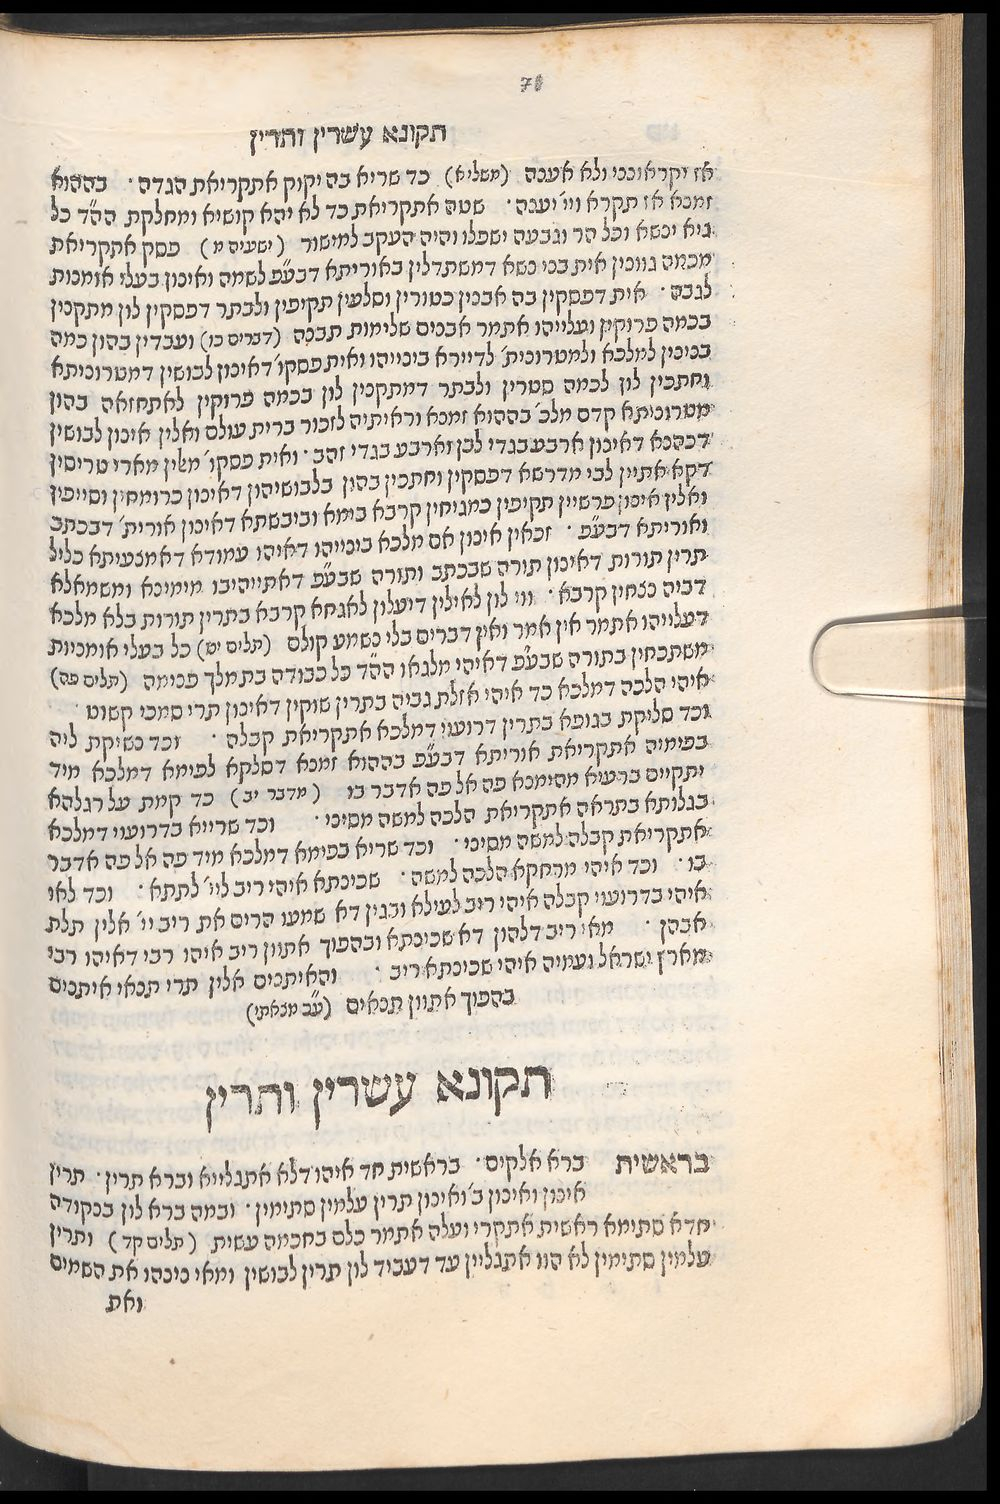 78
תקונא עשרין ותרין
אז יקראונני ולא אענה (משלי א) כד שריא בה יקוק אתקריאת הגדה · בההוא
זמנא אז תקרא ויי׳ יענה · שטה אתקריאת כד לא יהא קושיא ומחלקת הה״ד כל
גיא ינשא וכל הר וגבעה ישפלו והיה העקב למישור (ישעיה מ) פסק אתקריאת
מכמה גוונין אית בני נשא דמשתדלין באוריתא דבע״פ לשמה ואינון בעלי אומנות
לגבה · אית דפסקין בה אבנין כטורין וסלעין תקיפין ולבתר דפסקין לון מתקנין
בכמה פרוקין ועלייהו אתמר אבנים שלימות תבנה (דברים כז) ועבדין בהון כמה
בנינין למלכא ולמטרוניתי׳ לדיירא בינייהו ואית פסקו׳ דאינון לבושין דמטרוניתא
וחתכין לון לכמה סטרין ולבתר דמתקנין לון בכמה פרוקין לאתחזאה בהון
מטרוניתא קדם מלכ׳ בההוא זמנא וראיתיה לזכור ברית עולם ואלין אינון לבושין
דכהנא דאינון ארבע בגדי לבן וארבע בגדי זהב · ואית פסקו׳ מאלין מארי טריסין
דקא אתיין לבי מדרשא דפסקין וחתכין בהון בלבושיהון דאינון כרומחין וסייפין
ואלין אינון פרשיין תקיפין דמגיחין קרבא בימא וביבשתא דאינון אורית׳ דבכתב
ואוריתא דבע״פ · זכאין אינון אם מלכא בינייהו דאיהו עמודא דאמצעיתא כליל
תרין תורות דאינון תורה שבכתב ותורה שבע״פ דאתייהיבו מימינא ומשמאלא
דביה נצחין קרבא · ווי לון לאילין דיעלון לאגחא קרבא בתרין תורות בלא מלכא
דעלייהו אתמר אין אמר ואין דברים בלי נשמע קולם (תלים יט) כל בעלי אומניות
משתכחין בתורה שבע״פ דאיהי מלגאו הה״ד כל כבודה בת מלך פנימה (תלים מה)
איהי הלכה דמלכא כד איהי אזלת גביה בתרין שוקין דאינון תרי סמכי קשוט ·
וכד סליקת בגופא בתרין דרועוי דמלכא אתקריאת קבלה · וכד נשיקת ליה
בפימיה אתקריאת אוריתא דבע״פ בההוא זמנא דסלקא לפימא דמלכא מיד
יתקיים ברעיא מהימנא פה אל פה אדבר בו (מדבר יב) כד קמת על רגלהא
בגלותא בתראה אתקריאת הלכה למשה מסיני · וכד שרייא בדרועוי דמלכא
אתקריאת קבלה למשה מסיני · וכד שריא בפימא דמלכא מיד פה אל פה אדבר
בו · וכד איהי מרחקא הלכה למשה · שכינתא איהי ריב ליי׳ לתתא · וכד לאו
איהי בדרועוי קבלה איהי ריב לעילא ובגין דא שמעו הרים את ריב יי׳ אלין תלת
אבהן · מאי ריב דלהון דא שכינתא ובהפוך אתוון ריב איהו רבי דאיהו רבי
מארץ ישראל נעמיה איהי שכינתא ריב · והאיתנים אלין תרי תנאי איתנים
בהפוך אתוון תנאים (ע״כ מצאתי)
תקונא עשרין ותרין
בראשית ברא אלקים · בראשית חד איהו דלא אתגלייא וברא תרין · תרין
אינון ואינון ב׳ ואינון תרין עלמין סתימין · ובמה ברא לון בנקודה
חדא סתימא ראשית אתקרי ועלה אתמר כלם בחכמה עשית (תלים קד) ותרין
עלמין סתימין לא הוו אתגליין עד דעביד לון תרין לבושין ומאי נינהו את השמים
ואת